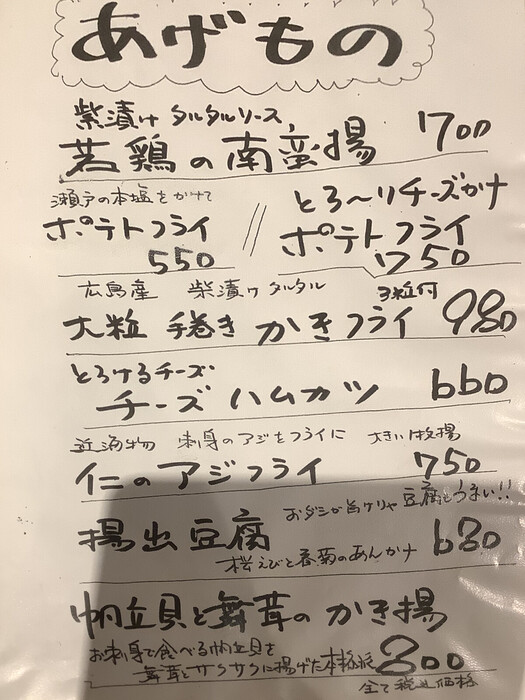 あげもの
紫漬け タルタルソース
若鶏の南蛮揚 700
瀬戸の本塩をかけて
ポテトフライ
550
とろ〜りチーズかけ
ポテトフライ
750
広島産 紫漬けタルタル 3粒付
大粒 手巻き かきフライ 980
とろけるチーズ
チーズハムカツ 660
近海物 刺身のアジをフライに 大きい1枚揚
仁のアジフライ 750
おダシが旨けりゃ豆腐もうまい!!
揚出豆腐 680
桜えびと春菊のあんかけ
帆立貝と舞茸のかき揚
お刺身で食べる帆立貝を
舞茸とサクサクに揚げた本格派 800
全て税込価格